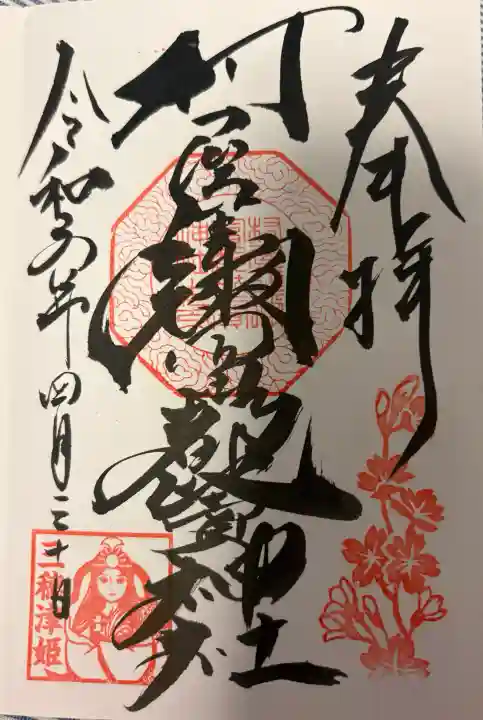 奉拝
村屋坐彌冨都比賣神社
令和 年四月三十日
三穂津姫